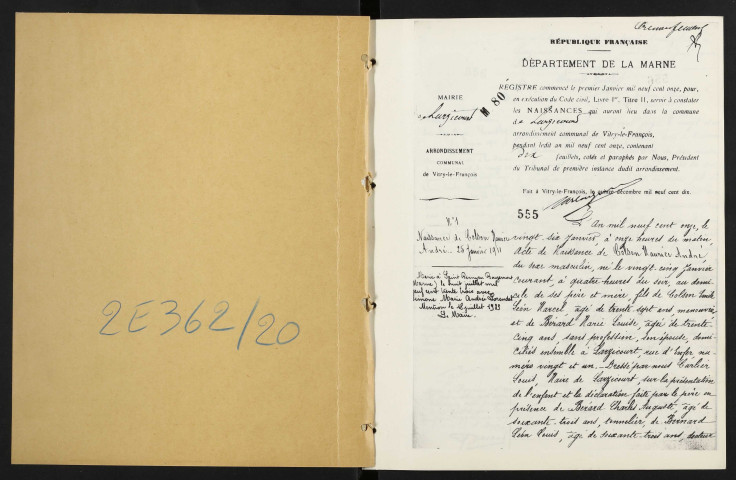 2E362/20
Premier feuillet
RÉPUBLIQUE FRANÇAISE
DÉPARTEMENT DE LA MARNE
MAIRIE
de Larzicourt
ARRONDISSEMENT
COMMUNAL
de Vitry-le-François
M 80
REGISTRE commencé le premier Janvier mil neuf cent onze, pour,
en exécution du Code civil, Livre Ier, Titre II, servir à constater
les NAISSANCES qui auront lieu dans la commune
de Larzicourt
arrondissement communal de Vitry-le-François,
pendant ledit an mil neuf cent onze, contenant
dix feuillets, cotés et paraphés par Nous, Président
du Tribunal de première instance dudit arrondissement.
Fait à Vitry-le-François, le décembre mil neuf cent dix.
555
N° 1
Naissance de Maurice
André 25 Janvier 1911
Marié à Saint
Marne, le huit juillet mil
neuf cent trente trois avec
Simone Marie Andrée
Mention le juillet 1933
Le Maire.
L'An mil neuf cent onze, le
vingt-six janvier, à onze heures du matin,
Acte de Naissance de Maurice André
du sexe masculin, né le vingt-cinq janvier
courant, à quatre heures du soir, au domi-
cile de ses père et mère, fils de
Léon Marcel, âgé de trente sept ans, manœuvre
et de Bérard Marie Louise, âgée de trente
cinq ans, sans profession, son épouse, domi-
ciliés ensemble à Larzicourt, rue d'Enfer nu-
méro vingt et un. – Dressé par nous Carlier
Louis, Maire de Larzicourt, sur la présentation
de l'enfant et la déclaration faite par le père en
présence de Bérard Charles Auguste, âgé de
soixante-trois ans, tonnelier, de Bernard
Léon Louis, âgé de soixante-trois ans, docteur